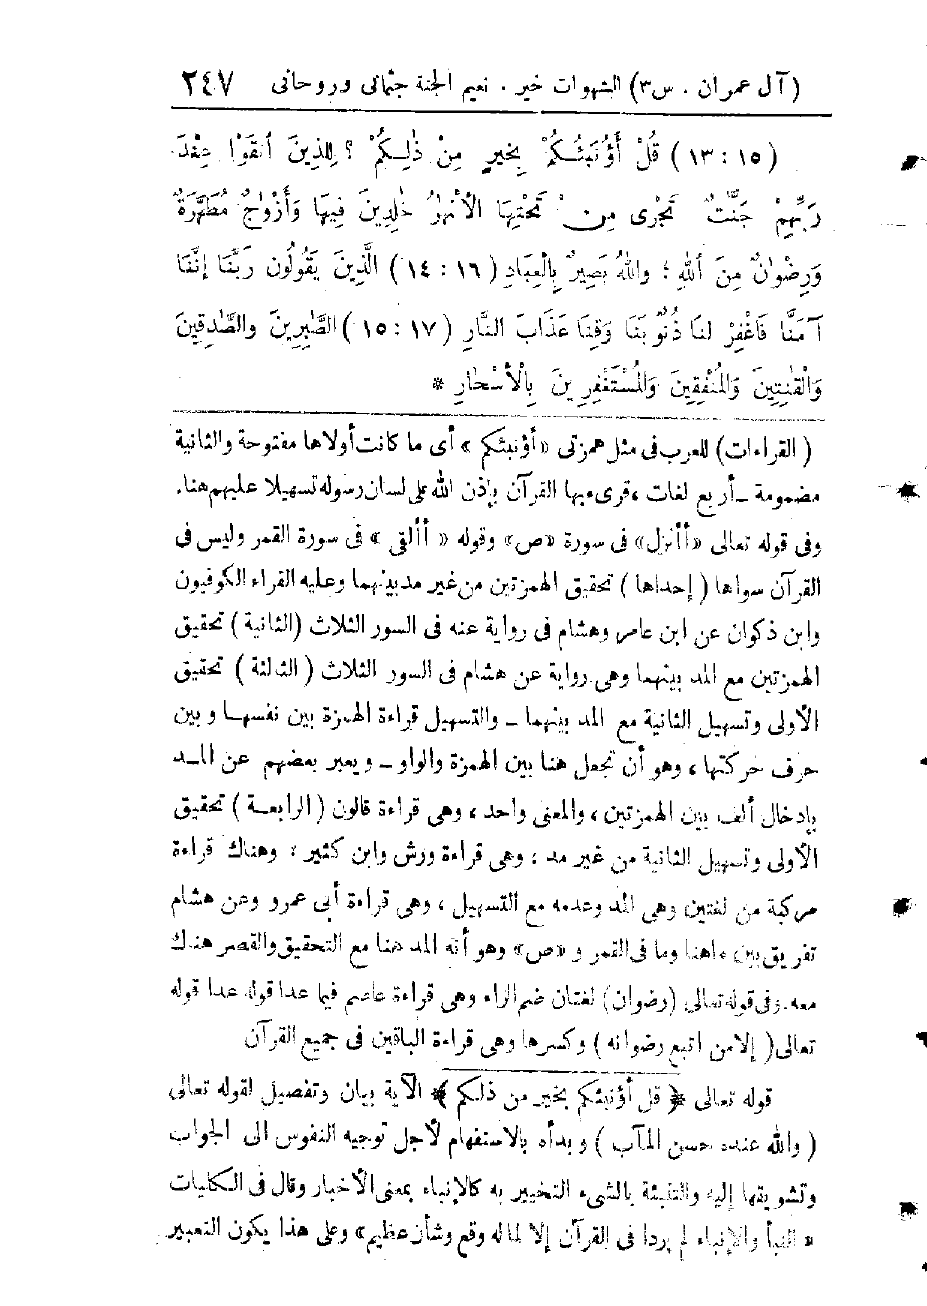 (آل عمران . س٣) الشهوات خير . نعيم الجنة جثمانى وروحانى ٢٤٧
(١٣:١٥) قُلْ أَؤُنَبِّئُكُمْ بِخَيْرٍ مِنْ ذٰلِكُمْ ؟ لِلَّذِينَ اتَّقَوْا عِنْدَ
رَبِّهِمْ جَنّٰتٌ تَجْرِى مِن تَحْتِهَا الأَنْهٰرُ خٰلِدِينَ فِيهَا وَأَزْوٰجٌ مُطَهَّرَةٌ
وَرِضْوٰنٌ مِنَ اللهِ ؛ واللهُ بَصِيرٌ بِالْعِبَادِ (١٤:١٦) الَّذِينَ يَقُولُون رَبَّنَا إنَّنَا
آمَنَّا فَاغْفِرْ لنَا ذُنُوبَنَا وَقِنَا عَذَابَ النَّارِ (١٥:١٧) الصّٰبِرِينَ والصّٰدِقِينَ
وَالْقٰنِتِينَ وَالْمُنْفِقِينَ وَالْمُسْتَغْفِرِينَ بِالْأَسْحَارِ *
(القراءات) للعرب فى مثل همزتى «أؤنبئكم» أى ما كانت أولاها مفتوحة والثانية
مضمومة ـ أربع لغات ، قرىء بها القرآن بإذن الله على لسان رسوله تسهيلا عليهم هنا.
وفى قوله تعالى «أأنزل» فى سورة «ص» وقوله «أألقى» فى سورة القمر وليس فى
القرآن سواها (إحداها) تحقيق الهمزتين من غير مد بينهما وعليه القراء الكوفيون
وابن ذكوان عن ابن عامر وهشام فى رواية عنه فى السور الثلاث (الثانية) تحقيق
الهمزتين مع المد بينهما وهى رواية عن هشام فى السور الثلاث (الثالثة) تحقيق
الأولى وتسهيل الثانية مع المد بينهما ـ والتسهيل قراءة الهمزة بين نفسها وبين
حرف حركتها ، وهو أن تجعل هنا بين الهمزة والواو ـ ويعبر بعضهم عن المد
بإدخال ألف بين الهمزتين ، والمعنى واحد ، وهى قراءة قالون (الرابعة) تحقيق
الأولى وتسهيل الثانية من غير مد ، وهى قراءة ورش وابن كثير ؛ وهناك قراءة
مركبة من لغتين وهى المد وعدمه مع التسهيل ، وهى قراءة أبى عمرو وعن هشام
تفريق بين ماهنا وما فى القمر و «ص» وهو أنه المد هنا مع التحقيق والقصر هناك
معه. وفى قوله تعالى (رضوان) لغتان ضم الراء وهى قراءة عاصم فيما عدا قوله عدا قوله
تعالى (إلا من اتبع رضوانه) وكسرها وهى قراءة الباقين فى جميع القرآن
قوله تعالى ﴿قل أؤنبئكم بخير من ذلكم﴾ الآية بيان وتفصيل لقوله تعالى
(والله عنده حسن المآب) وبدأه بالاستفهام لأجل توجيه النفوس الى الجواب
وتشويقها إليه والتنبئة بالشىء التخبير به كالإنباء بمعنى الأخبار وقال فى الكليات
«النبأ والإنباء لم يردا فى القرآن إلا لما له وقع وشأن عظيم» وعلى هذا يكون التعبير